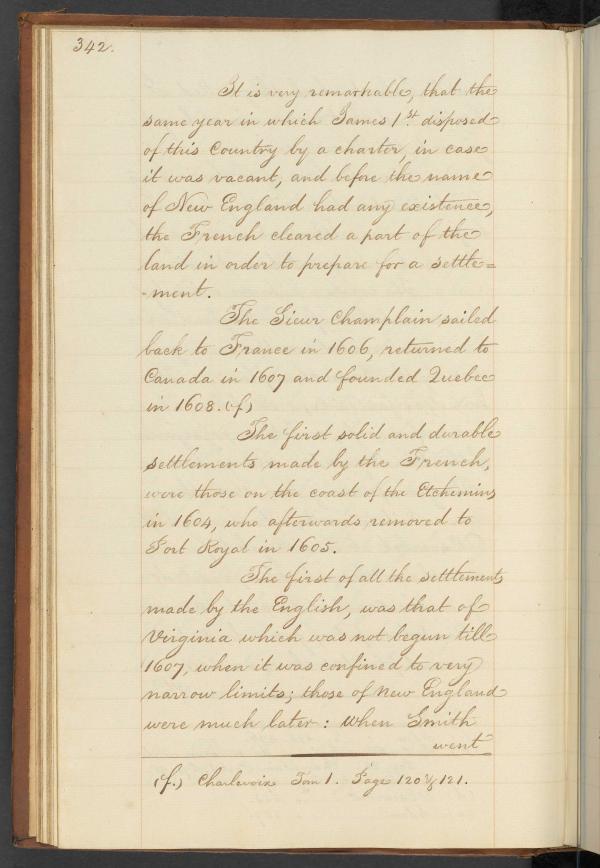 342.
It is very remarkable, that the
same year in which James 1st. disposed
of this Country by a charter, in case
it was vacant, and before the name
of New England had any existence,
the French cleared a part of the
land in order to prepare for a settle=
-ment.
The Sieur Champlain sailed
back to France in 1606, returned to
Canada in 1607 and founded Quebec
in 1608. (f)
The first solid and durable
settlements made by the French,
were those on the coast of the Etchemins
in 1604, who afterwards removed to
Port Royal in 1605.
The first of all the settlements
made by the English, was that of
Virginia which was not begun till
1607, when it was confined to very
narrow limits; those of New England
were much later: when Smith
went
(f.) Charlevoix Tom 1. Page 120 & 121.